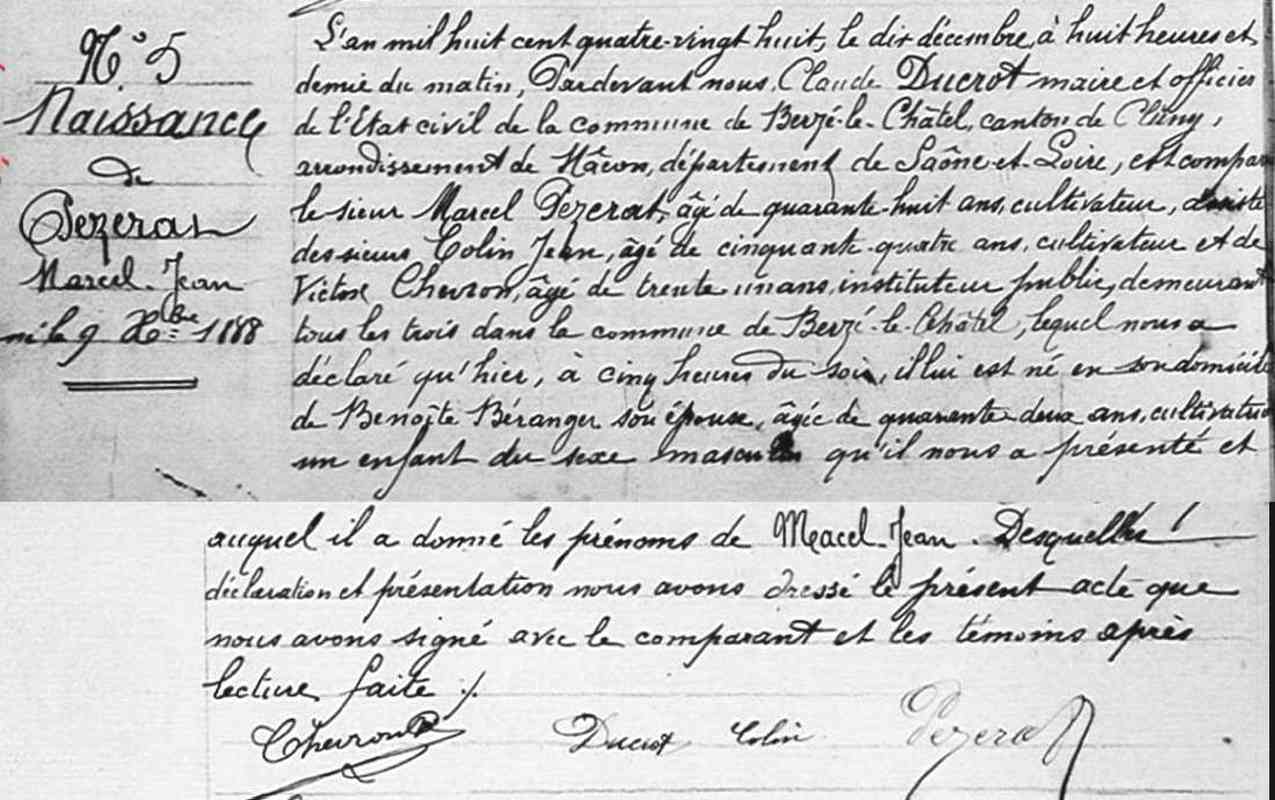 N.° 5
Naissance
de
Pezerat
Marcel Jean
né le 9 Xbre 1888
L'an mil huit cent quatre-vingt huit, le dix décembre, à huit heures et
demie du matin, Pardevant nous, Claude Ducrot maire et officier
de l'Etat civil de la commune de Berzé-le-Châtel, canton de Cluny,
arrondissement de Mâcon, département de Saône-et-Loire, est compar
le sieur Marcel Pézerat, âgé de quarante-huit ans, cultivateur, assisté
des sieurs Colin Jean, âgé de cinquante-quatre ans, cultivateur et de
Victor Chevron, âgé de trente un ans, instituteur public, demeurant
tous les trois dans la commune de Berzé-le-Châtel, lequel nous a
déclaré qu'hier, à cinq heures du soir, il lui est né en son domicile
de Benoîte Béranger son épouse, âgée de quarante-deux ans, cultivatrice
un enfant du sexe masculin qu'il nous a présenté et
auquel il a donné les prénoms de Macel Jean. Desquelles
déclaration et présentation nous avons dressé le présent acte que
nous avons signé avec le comparant et les témoins après
lecture faite ./.
Chevron Ducrot Colin Pezerat